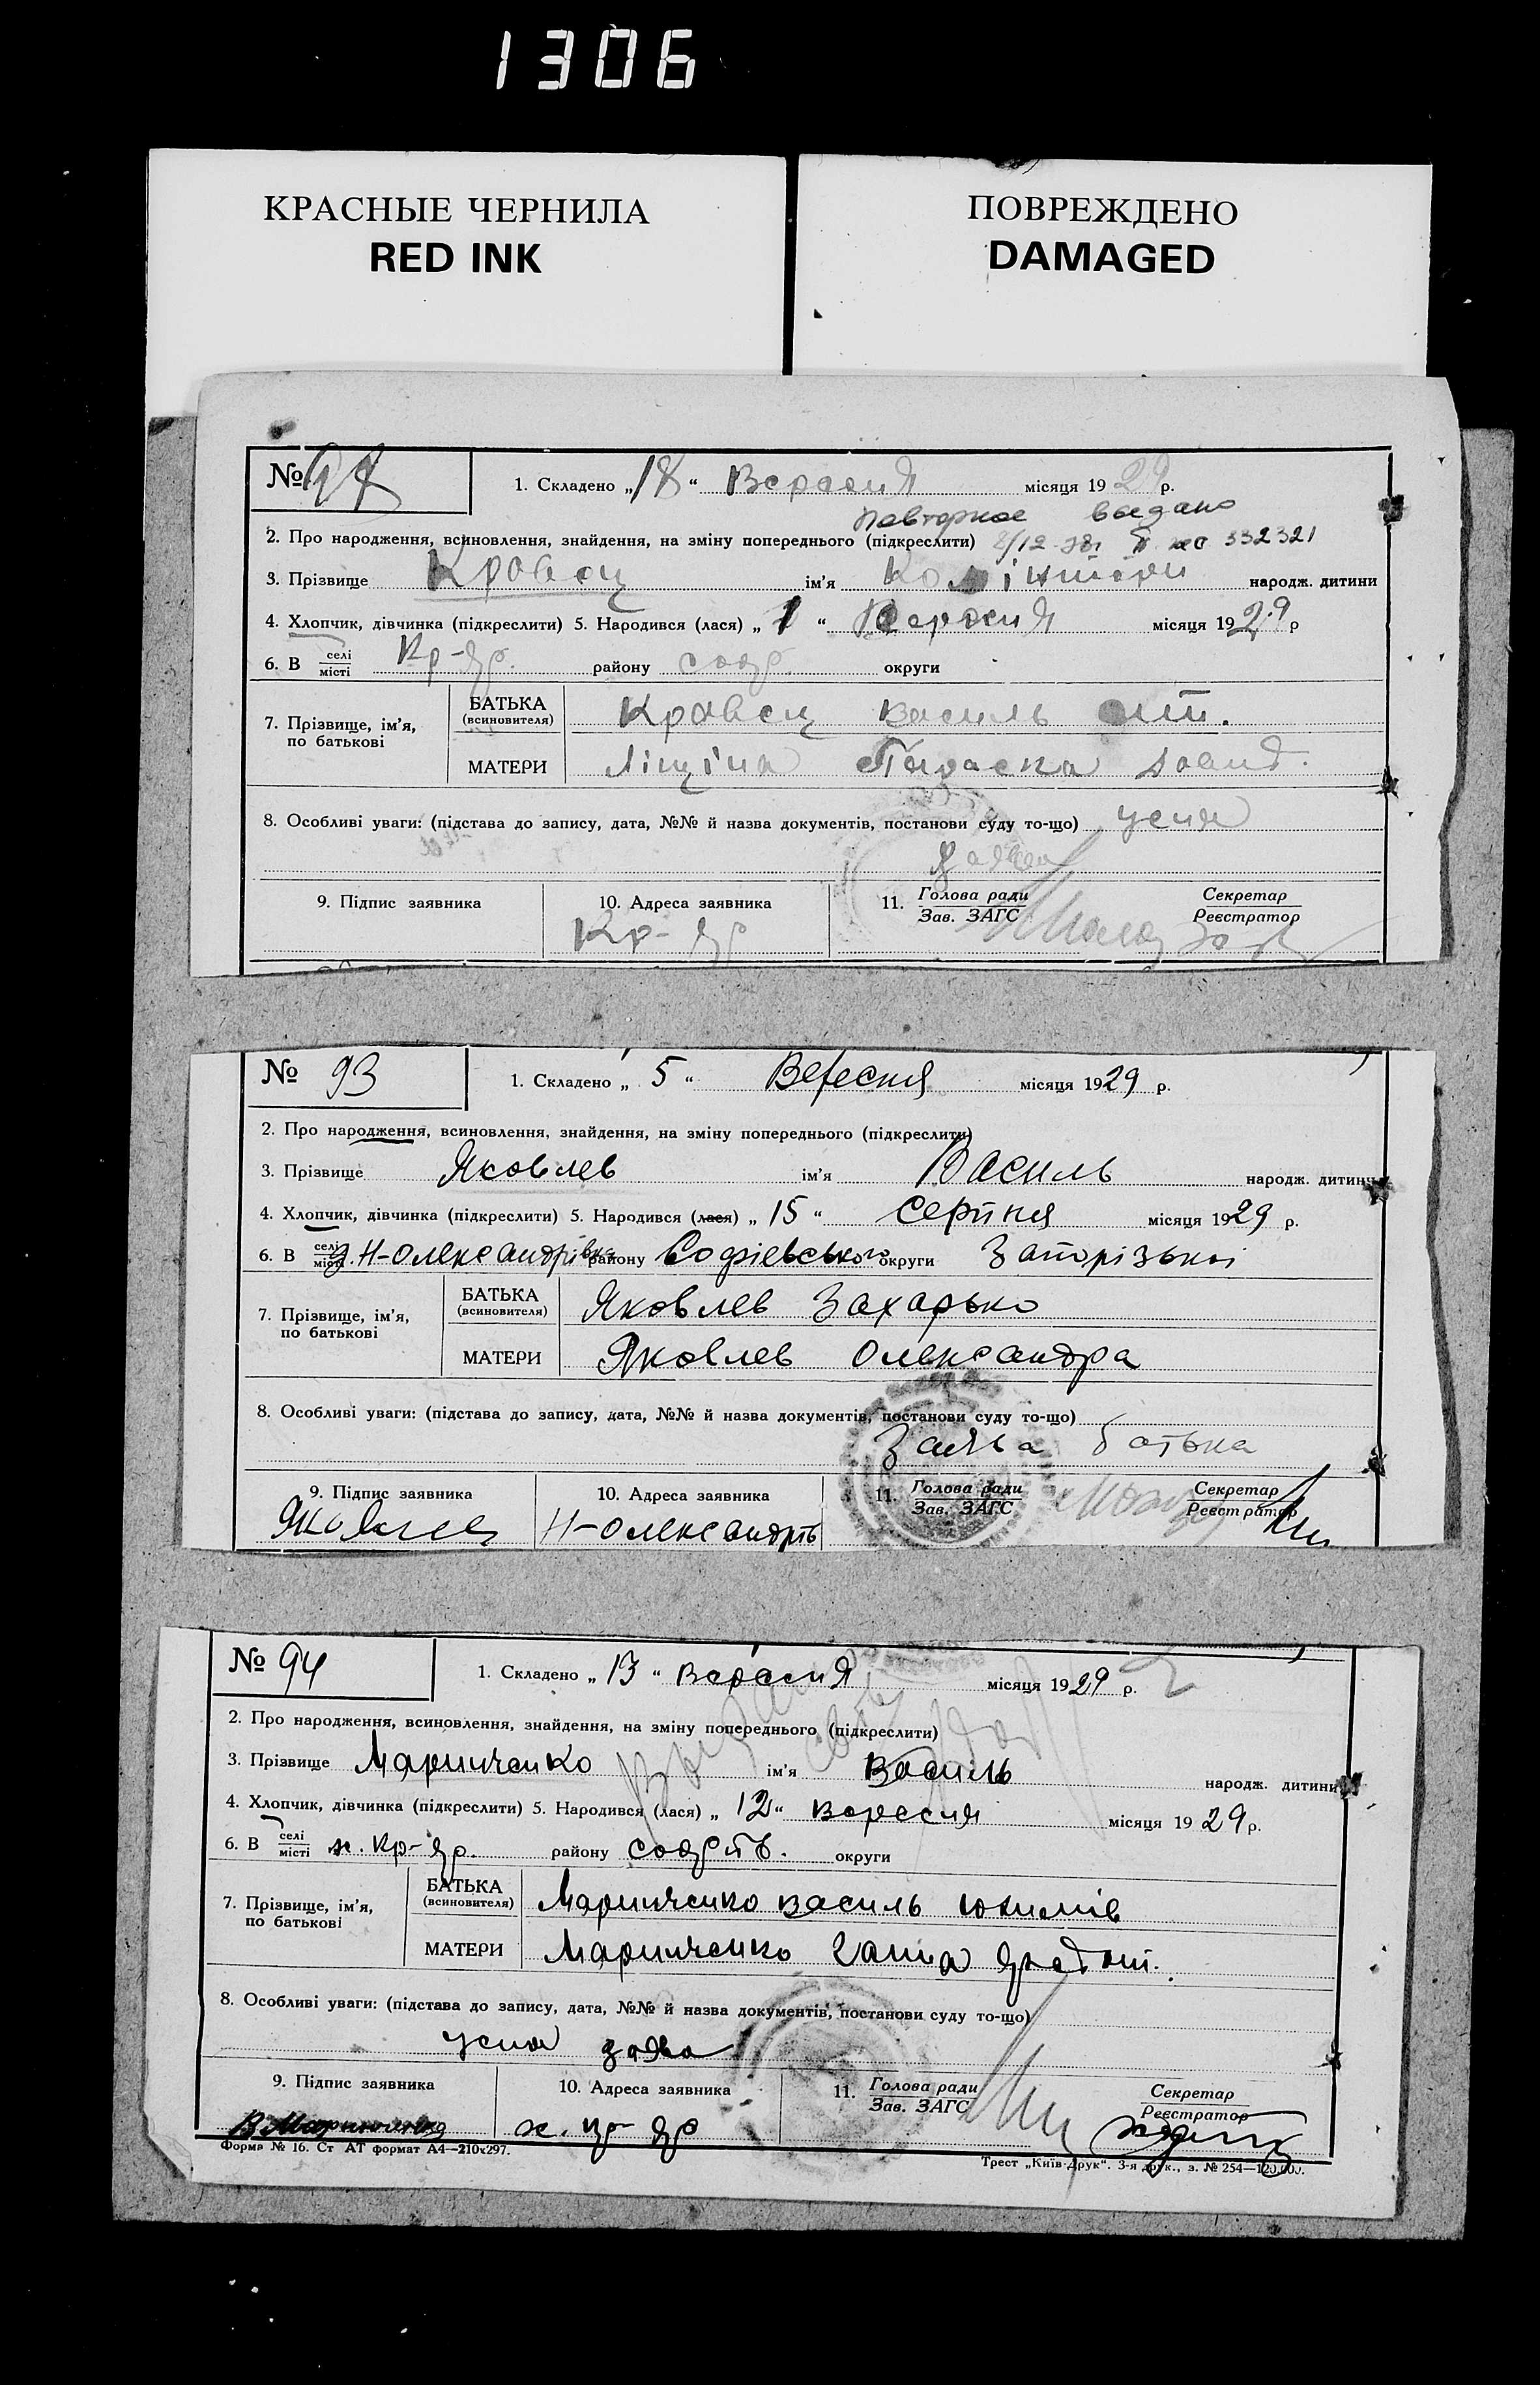 1306
КРАСНЫЕ ЧЕРНИЛА
RED INK
ПОВРЕЖДЕНО
DAMAGED
№ 1. Складено „18“ Вересня місяця 1929 р.
повторное выдано
2. Про народження, всиновлення, знайдення, на зміну попереднього (підкреслити) 332321
3. Прізвище Кравец ім'я народж. дитини
4. Хлопчик, дівчинка (підкреслити) 5. Народився (лася) „1“ Вересня місяця 1929 р
6. В селі місті Кр-Яр. району округи
7. Прізвище, ім'я, по батькові
БАТЬКА (всиновителя) Кравец Василь
МАТЕРИ Параска
8. Особливі уваги: (підстава до запису, дата, №№ й назва документів, постанови суду то-що) усна
заява
9. Підпис заявника 10. Адреса заявника 11. Голова ради Зав. ЗАГС Секретар Реєстратор
Кр-Яр
№ 93 1. Складено „5“ Вересня місяця 1929 р.
2. Про народження, всиновлення, знайдення, на зміну попереднього (підкреслити)
3. Прізвище Яковлев ім'я Василь народж. дитини
4. Хлопчик, дівчинка (підкреслити) 5. Народився (лася) „15“ Серпня місяця 1929 р.
6. В селі місті Н-Олександрівка району Софіевського округи Запорізькоі
7. Прізвище, ім'я, по батькові
БАТЬКА (всиновителя) Яковлев Захарько
МАТЕРИ Яковлев Олександра
8. Особливі уваги: (підстава до запису, дата, №№ й назва документів, постанови суду то-що)
Заява батька
9. Підпис заявника 10. Адреса заявника 11. Голова ради Зав. ЗАГС Секретар Реєстратор
Яковлев Н-Олександрів
№ 94 1. Складено „13“ Вересня місяця 1929 р.
2. Про народження, всиновлення, знайдення, на зміну попереднього (підкреслити)
3. Прізвище Маринченко ім'я Василь народж. дитини
4. Хлопчик, дівчинка (підкреслити) 5. Народився (лася) „12“ Вересня місяця 1929 р.
6. В селі місті х. Кр-Яр. району округи
7. Прізвище, ім'я, по батькові
БАТЬКА (всиновителя) Маринченко Василь Юхимів
МАТЕРИ Маринченко Ганна
8. Особливі уваги: (підстава до запису, дата, №№ й назва документів, постанови суду то-що)
усна заява
9. Підпис заявника 10. Адреса заявника 11. Голова ради Зав. ЗАГС Секретар Реєстратор
В Маринченко х. Кр-Яр
Форма № 16. Ст АТ формат А4—210х297.
Трест „Київ-Друк“. 3-я друк., з. № 254—120.000.